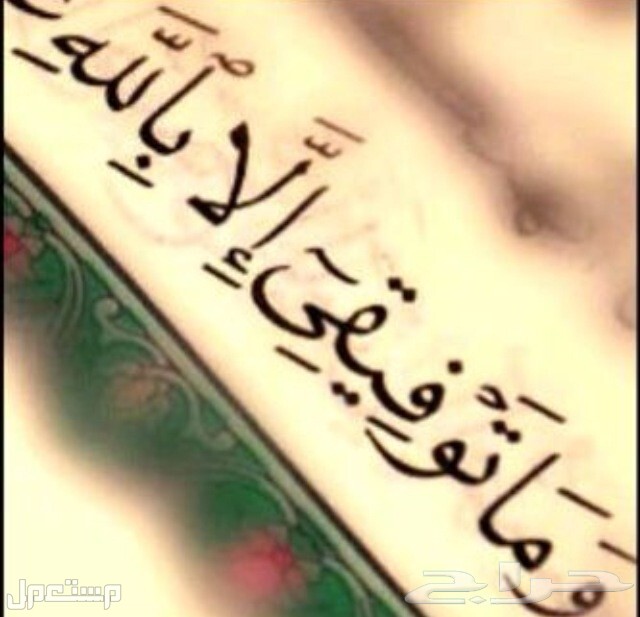 وَمَا تَوْفِيقِيٓ إِلَّا بِٱللَّهِ
حراج
مستعمل